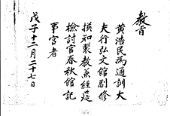 敎旨
黃浩民爲通訓大
夫行弘文館副修
撰知製敎兼經筵
檢討官春秋館記
事官者
戊子十二月二十七日